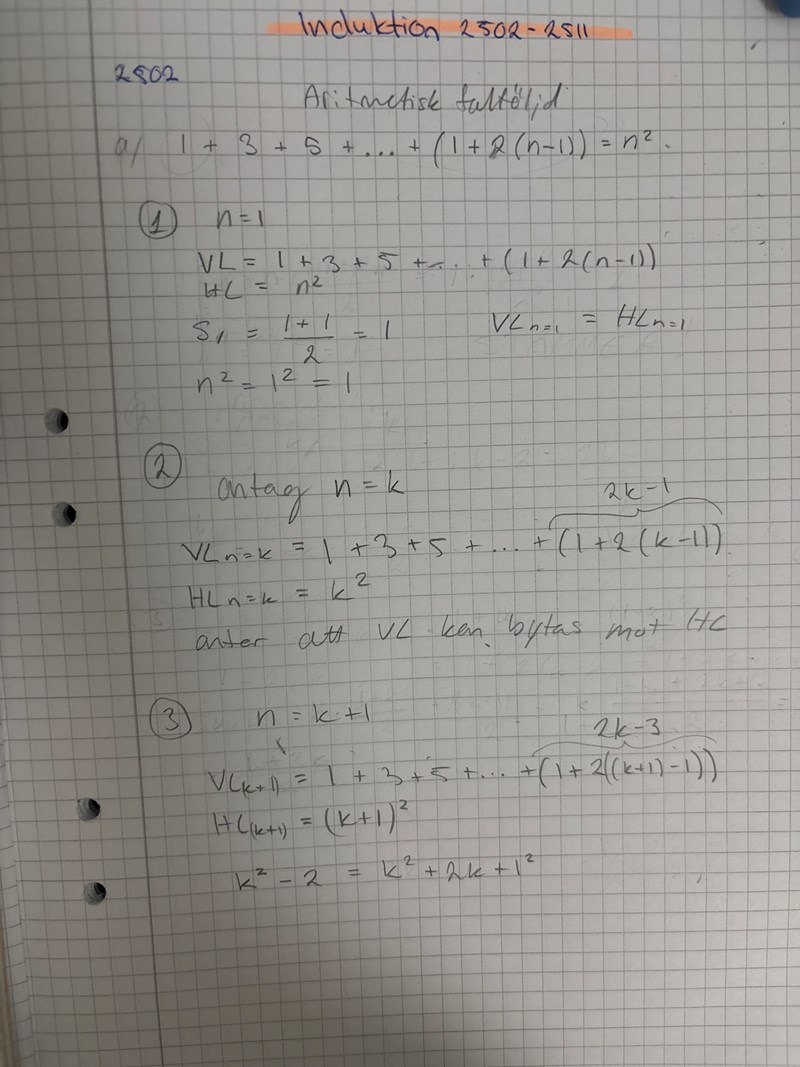 Induktion 2502-2511
2502
Aritmetisk talföljd
a) 1 + 3 + 5 + ... + (1 + 2(n-1)) = n².
① n = 1
VL = 1 + 3 + 5 + ... + (1 + 2(n-1))
HL = n²
S₁ = (1+1)/2 = 1 VLn=1 = HLn=1
n² = 1² = 1
② antag n = k
2k-1
VLn=k = 1 + 3 + 5 + ... + (1 + 2(k-1))
HLn=k = k²
anter att VL kan bytas mot HL
③ n = k+1
2k-3
VL(k+1) = 1 + 3 + 5 + ... + (1 + 2((k+1)-1))
HL(k+1) = (k+1)²
k² - 2 = k² + 2k + 1²